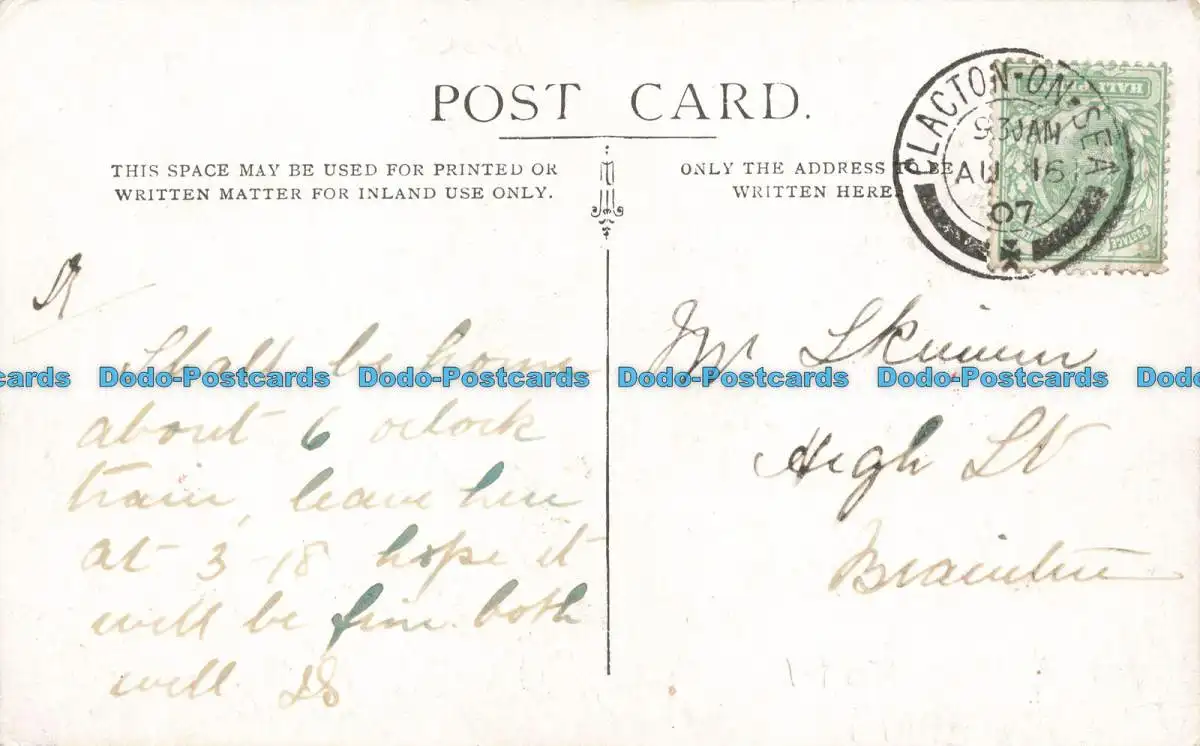 POST CARD.
THIS SPACE MAY BE USED FOR PRINTED OR
WRITTEN MATTER FOR INLAND USE ONLY.
ONLY THE ADDRESS TO BE
WRITTEN HERE.
CLACTON-ON-SEA
AU 16
07
HALFPENNY
POSTAGE
Shall be home
about 6 oclock
train, leave here
at 3-18 hope it
will be fine both
will
Mr Skinner
High St
Braintree
Dodo-Postcards Dodo-Postcards Dodo-Postcards Dodo-Postcards